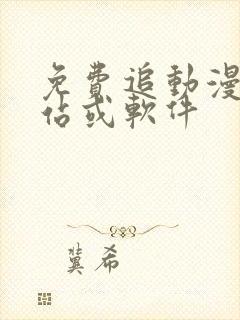 免費追動漫
佔或軟件
冀希